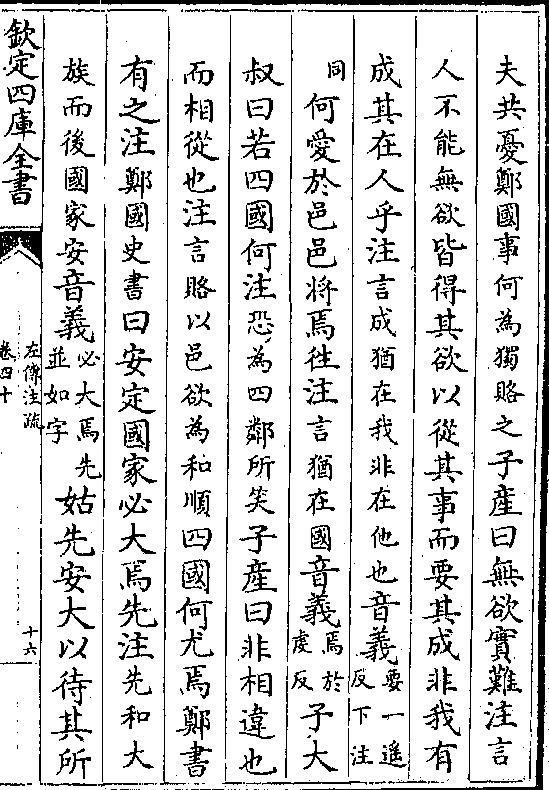 夫共憂鄭國事何為獨賂之子産曰無欲實難注言
人不能無欲皆得其欲以從其事而要其成非我有
成其在人乎注言成猶在我非在他也音義要一遥反下注
同何愛於邑邑將焉徃注言猶在國音義焉於䖍反子大
叔曰若四國何注恐為四鄰所笑子産曰非相違也
而相從也注言賂以邑欲為和順四國何尤焉鄭書
有之注鄭國史書曰安定國家必大焉先注先和大
族而後國家安音義必大焉先並如字姑先安大以待其所
欽定四庫全書
左傳注疏
卷四十
十六